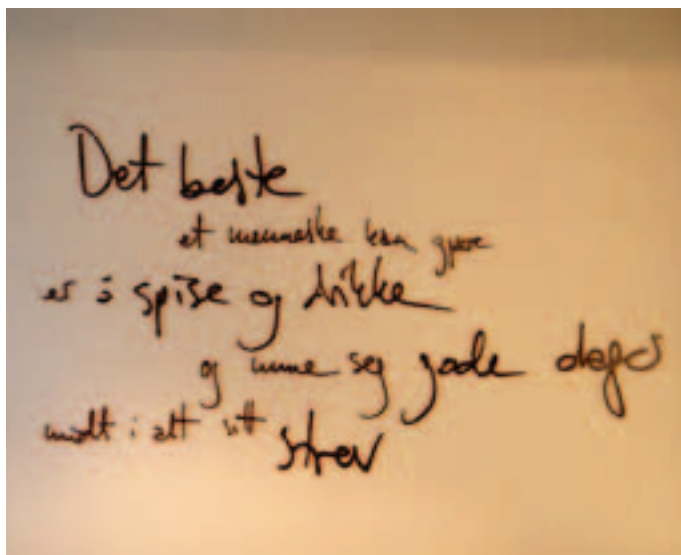 Det beste
et menneske kan gjøre
er å spise og drikke
og unne seg gode dager
midt i alt sitt strev